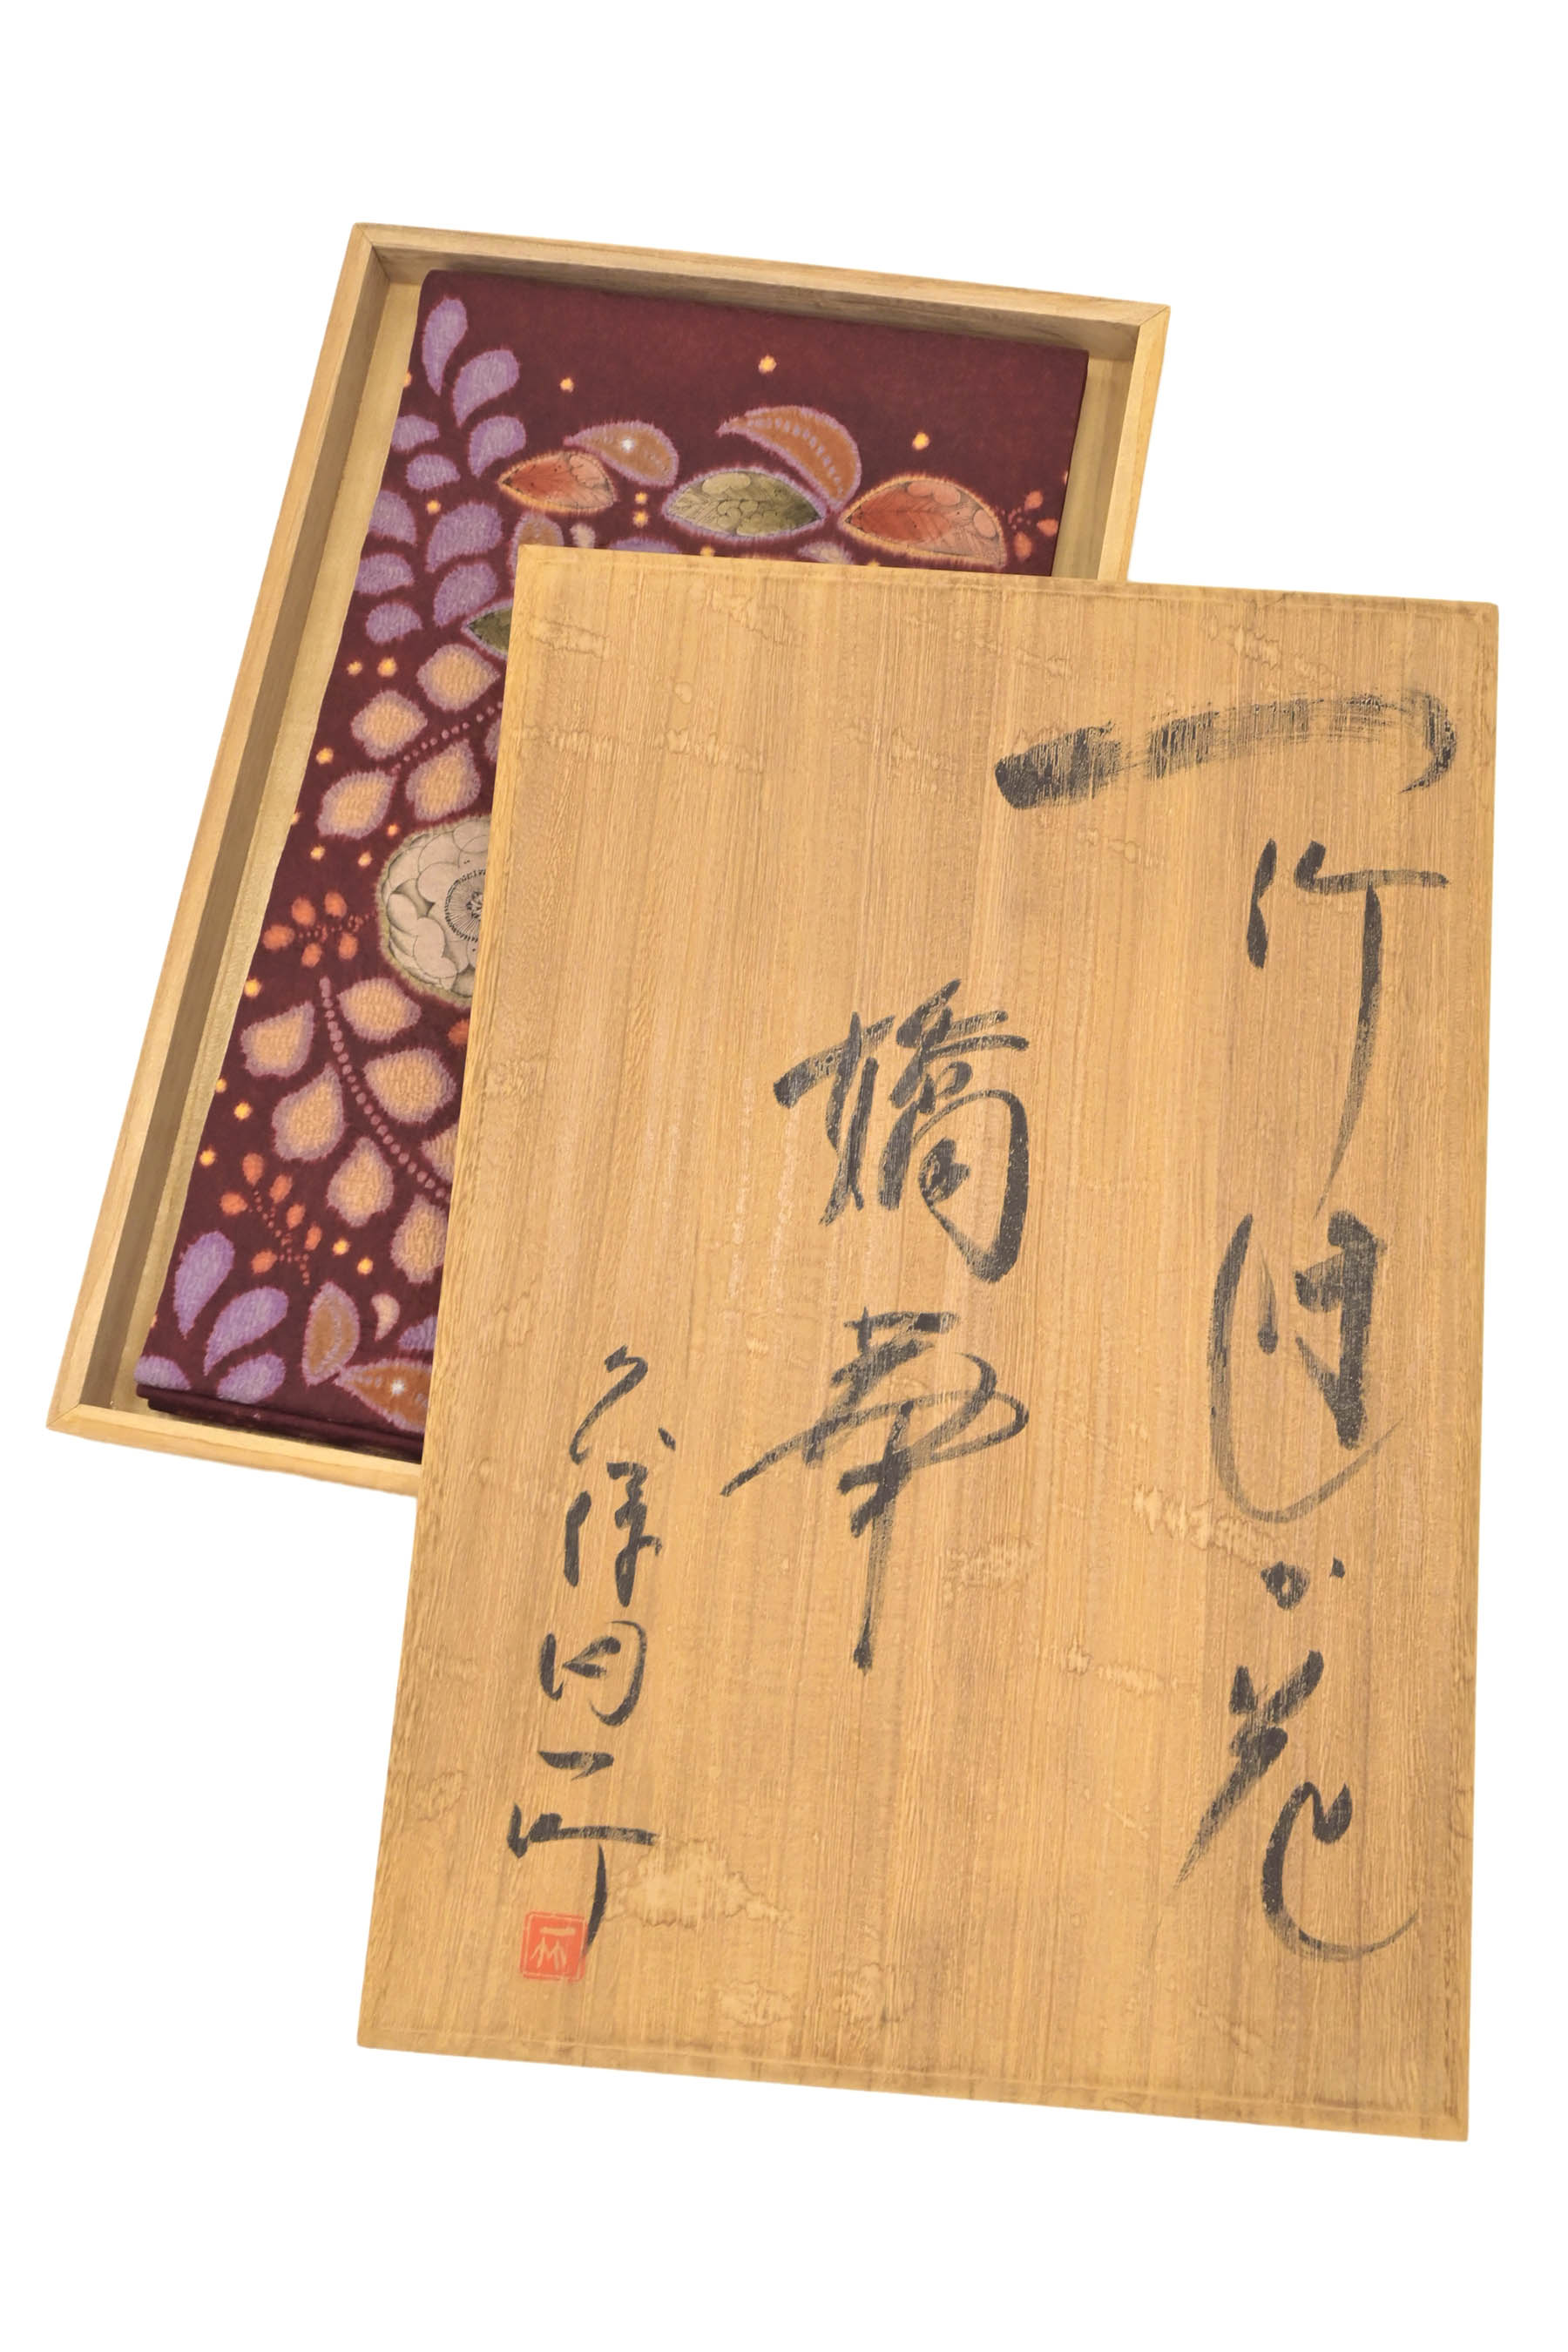 一竹辻が花
嬌華
久保田一竹
一竹